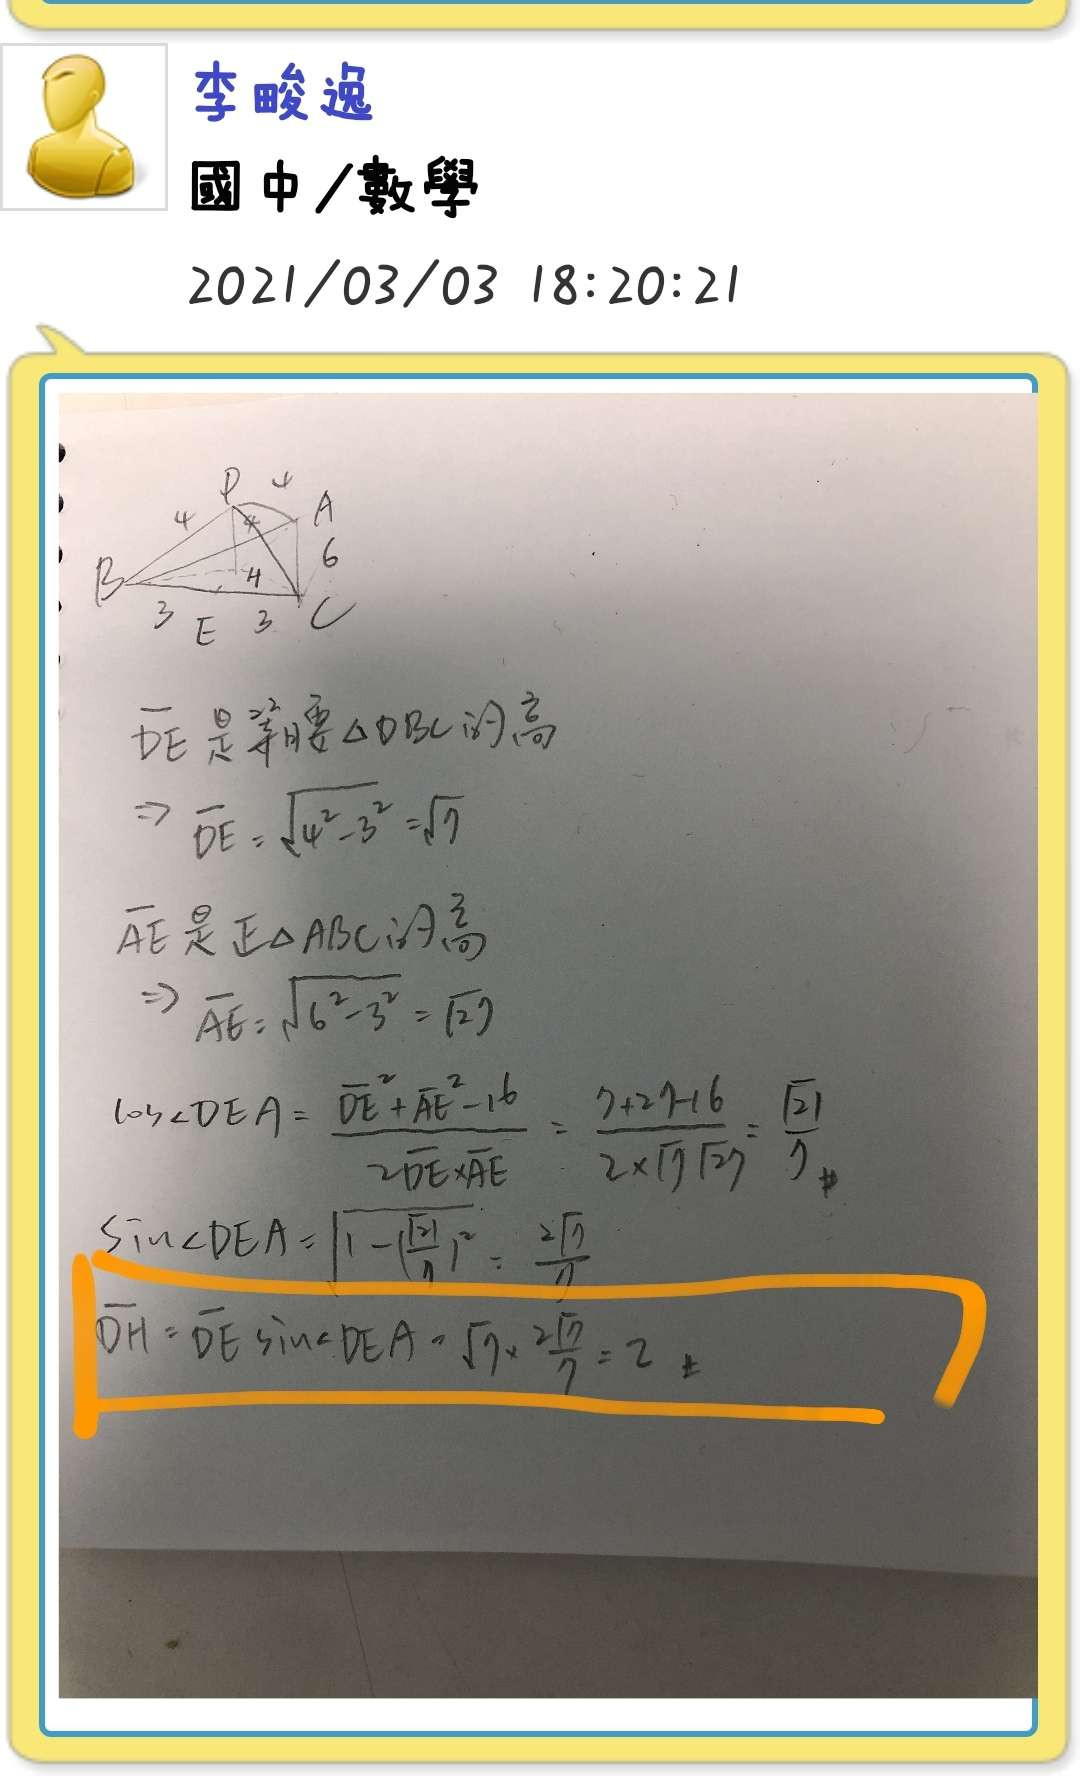 李畯逸
國中/數學
2021/03/03 18:20:21
D 4
4 4 A
6
B H
3 E 3 C
DE是等腰△DBC的高
⇒ DE = √4²-3² = √7
AE是正△ABC的高
⇒ AE = √6²-3² = √27
cos∠DEA = DE²+AE²-16 / 2DE×AE = 7+27-16 / 2×√7√27 = √21 / 7 #
sin∠DEA = √1-(√21/7)² = 2√7 / 7
DH = DE sin∠DEA = √7 × 2√7/7 = 2 #